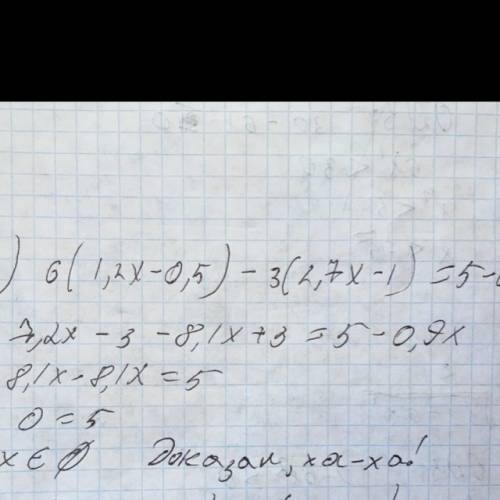 ) 6(1,2x-0,5)-3(2,7x-1)=5-0
7,2x-3-8,1x+3=5-0,9x
8,1x-8,1x=5
0=5
x∈∅ Доказал, ха-ха!